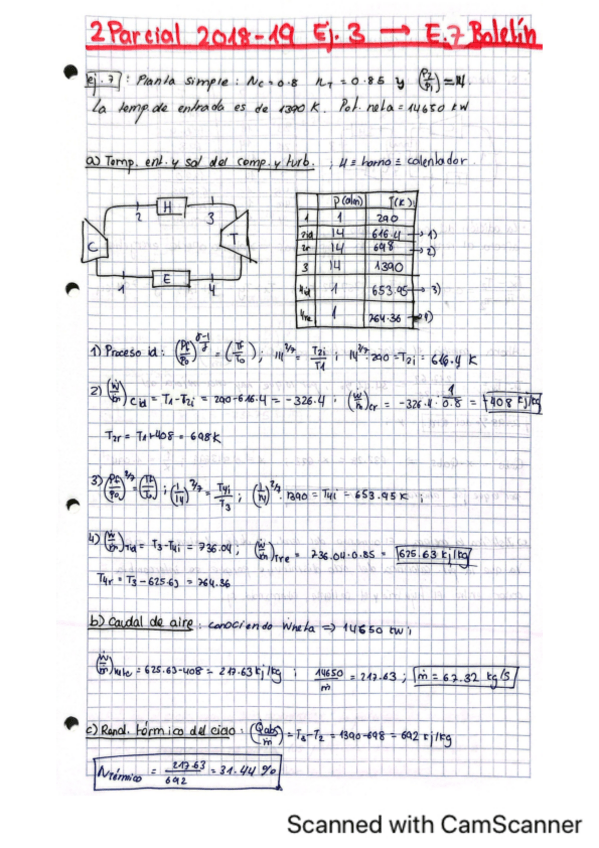 2 Parcial 2018-19 Ej. 3 → E.7 Boletín
ej. 7 : Planta simple : Nc = 0.8 nT = 0.85 y (P2/P1) = 14.
La temp de entrada es de 1390 K. Pot. neta = 14650 kW
a) Temp. ent. y sal del comp. y turb. ; H ≡ horno ≡ calentador
H
2 3
C T
E
1 4
P(atm) T(K)
1 1 290
2id 14 616.4 → 1)
2r 14 698 → 2)
3 14 1390
4id 1 653.95 → 3)
4re 1 764.36 → 4)
1) Proceso id : (Pf/P0)^(γ-1/γ) = (Tf/T0) ; 14^2/7 = T2i/T1 ; 14^2/7 · 290 = T2i = 616.4 K
2) (ẇ/ṁ)Cid = T1 - T2i = 290 - 616.4 = -326.4 · (ẇ/ṁ)cr = -326.4 · 1/0.8 = -408 kj/kg
T2r = T1 + 408 = 698 K
3) (Pf/P0)^2/7 = (Tf/T0) ; (1/14)^2/7 = T4i/T3 ; (1/14)^2/7 · 1390 = T4i = 653.95 K ;
4) (ẇ/ṁ)Tid = T3 - T4i = 736.04 ; (ẇ/ṁ)Tre = 736.04 · 0.85 = 625.63 kj/kg
T4r = T3 - 625.63 = 764.36
b) Caudal de aire : conociendo Ẇneta => 14650 kW ;
(ẇ/ṁ)neta = 625.63 - 408 = 217.63 kj/kg ; 14650/ṁ = 217.63 ; ṁ = 67.32 kg/s
c) Rend. térmico del ciclo : (Qabs/ṁ) = T3 - T2 = 1390 - 698 = 692 kj/kg
Ntérmico = 217.63/692 = 31.44 %
Scanned with CamScanner